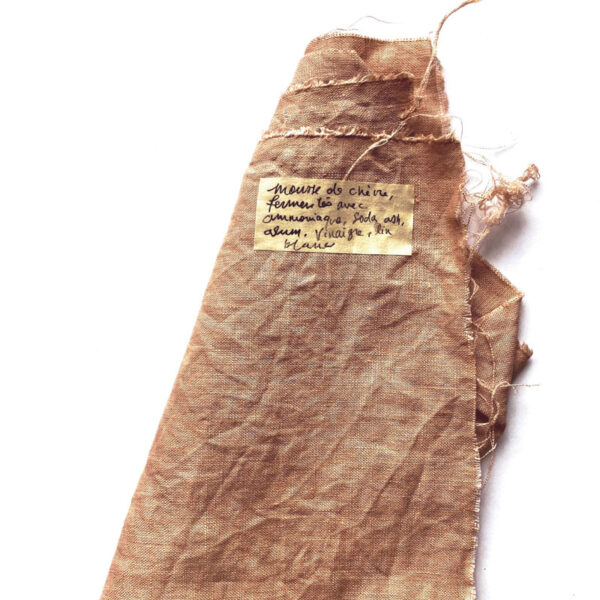 mousse de chêne,
fermentés avec
ammoniaque, soda ash,
alum, vinaigre, lin
blanc